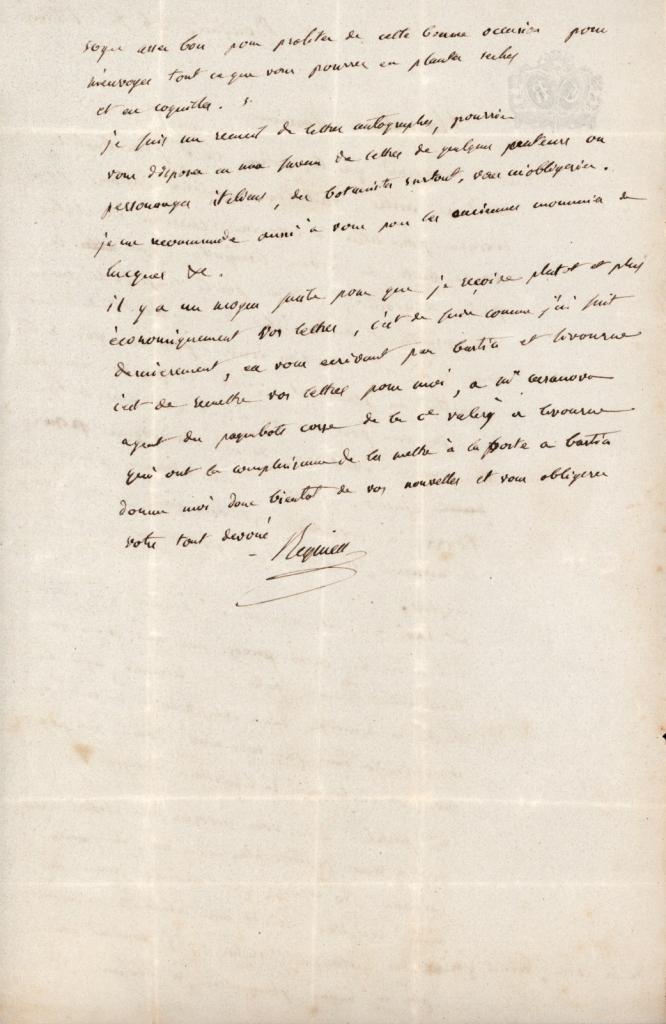 soyez assez bon pour profiter de cette bonne occasion pour
m'envoyer tout ce que vous pourrez en plantes seches
et en coquilles.
je fais un recueil de lettres autographes, pourriez
vous disposer en ma faveur de lettres de quelques penseurs ou
personnages italiens, des botanistes surtout, vous m'obligeriez.
je me recommande aussi à vous pour les anciennes monnaies de
lucques &c.
il y a un moyen facile pour que je recoive plutot et plus
économiquement vos lettres, c'est de faire comme j'ai fait
dernièrement, en vous ecrivant par bastia et livourne
c'est de remettre vos lettres pour moi, a mr casanova
agent des paquebots corse de la ce valery à livourne
qui ont la complaisance de les mettre à la poste a bastia
donnez moi donc bientot de vos nouvelles et vous obligerez
votre tout devoué
Requien